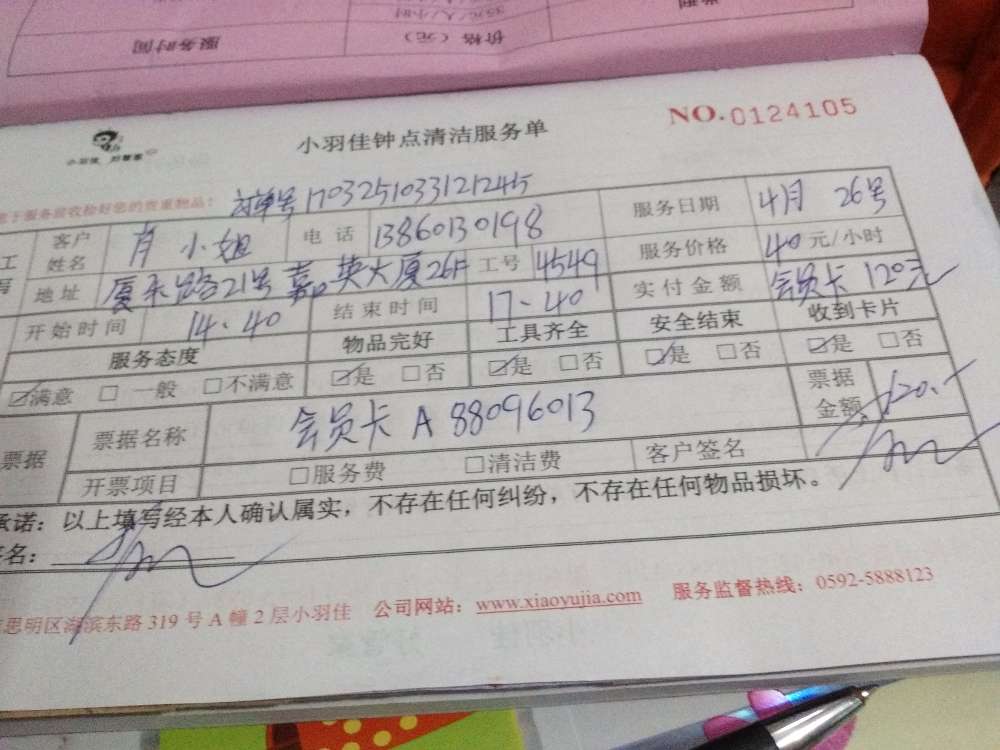 服务时间 价格（元）
35元/人/小时
小羽佳 好管家
小羽佳钟点清洁服务单
NO.0124105
于服务前收检好您的贵重物品：
订单号170325103312124515
客户姓名 肖小姐 电话 13860130198 服务日期 4月26号
地址 厦禾路21号嘉英大厦26F 工号 4549 服务价格 40元/小时
开始时间 14.40 结束时间 17.40 实付金额 会员卡120元
服务态度 物品完好 工具齐全 安全结束 收到卡片
☑满意 □一般 □不满意 ☑是 □否 ☑是 □否 ☑是 □否 ☑是 □否
票据 票据名称 会员卡A88096013 票据金额 120.-
开票项目 □服务费 □清洁费 客户签名
承诺：以上填写经本人确认属实，不存在任何纠纷，不存在任何物品损坏。
签名：
思明区湖滨东路319号A幢2层小羽佳 公司网站：www.xiaoyujia.com 服务监督热线：0592-5888123